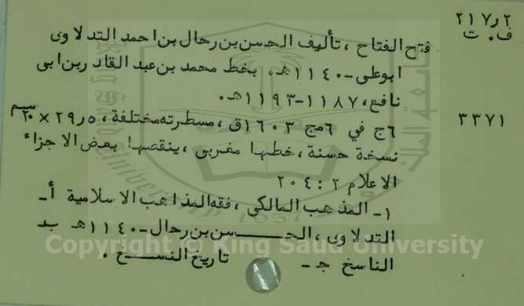 ٢ر٢١٧
ف٠ت
فتح الفتاح ، تأليف الحسن بن رحال بن احمد التدلاوى
ابوعلى -١١٤٠هـ. بخط محمد بن عبد القادر بن ابى
نافع، ١١٨٧-١١٩٣هـ.
٣٣٧١
٦ج في ٦مج ١٦٠٣ق ، مسطرته مختلفة ، ٢٩٫٥ × ٢٠سم
نسخة حسنة ، خطها مغربى ، ينقصها بعض الاجزاء
الاعلام ٢ : ٢٠٤
١- المذهب المالكى ، فقه المذاهب الاسلامية أ-
التدلاوى ، الحسن بن رحال -١١٤٠هـ ب-
الناسخ ج- تاريخ النسخ .
Copyright © King Saud University